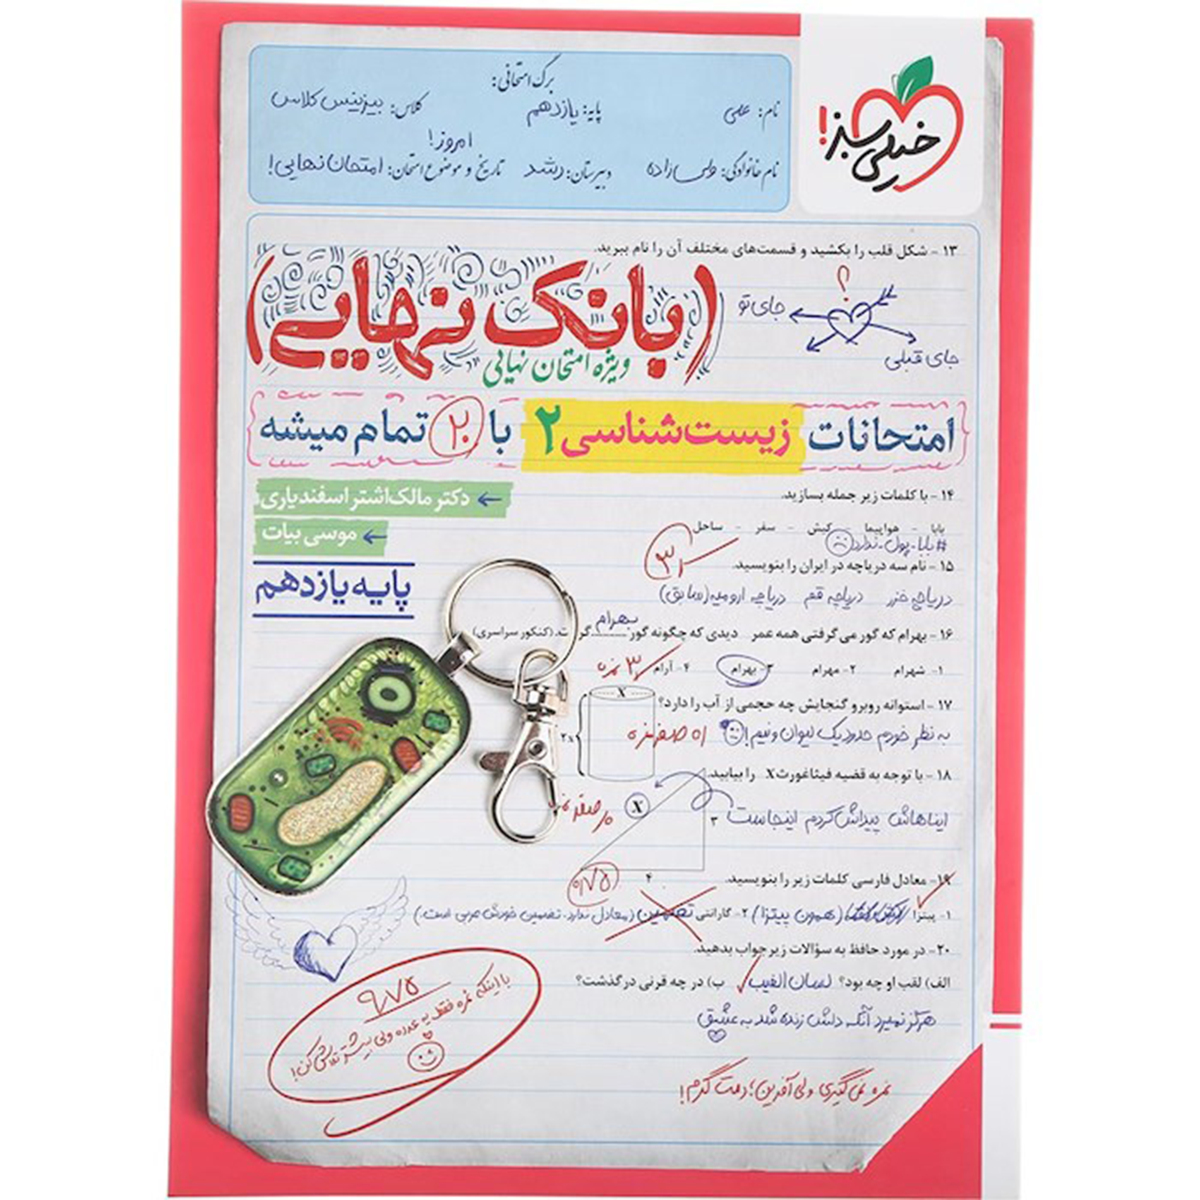 خیلی سبز!
برگ امتحانی:
نام: علی پایه: یازدهم کلاس: بیزینس کلاس
امروز!
نام خانوادگی: ولی‌زاده دبیرستان: رشد تاریخ و موضوع امتحان: امتحان نهایی!
۱۳- شکل قلب را بکشید و قسمت‌های مختلف آن را نام ببرید.
؟
جای تو
جای قبلی
(بانک نهایی)
ویژه امتحان نهایی
امتحانات زیست‌شناسی ۲ با ۲۰ تمام میشه
۱۴- با کلمات زیر جمله بسازید.
بابا - هواپیما - کیش - سفر - ساحل
#بابا-پول-ندارد
دکتر مالک‌اشتر اسفندیاری
موسی بیات
پایه یازدهم
۱۵- نام سه دریاچه در ایران را بنویسید.
دریاچه خزر دریاچه قم دریاچه ارومیه (سابق)
۱۶- بهرام که گور می‌گرفتی همه عمر دیدی که چگونه گور بهرام گرفت. (کنکور سراسری)
۱- شهرام ۲- مهرام ۳- بهرام ۴- آرام ۳ نمره
۱۷- استوانه روبرو گنجایش چه حجمی از آب را دارد؟
به نظر خودم حدود یک لیوان و نیم!
X
۲x
۱۸- با توجه به قضیه فیثاغورث X را بیابید.
ایناهاش پیداش کردم اینجاست
X
۳
۴
۰/۷۵
۱۹- معادل فارسی کلمات زیر را بنویسید.
۱- پیتزا (همون پیتزا) ۲- گارانتی تضمین (معادل ندارد. تضمین خودش عربی است.)
۲۰- در مورد حافظ به سؤالات زیر جواب بدهید.
الف) لقب او چه بود؟ لسان الغیب ب) در چه قرنی درگذشت؟
هرگز نمیرد آنکه دلش زنده شد به عشق
۹/۷۵
با اینکه نمره فقط یه عدده ولی بیشتر تلاش کن!
نمره نمی‌گیری ولی آفرین؛ دمت گرم!